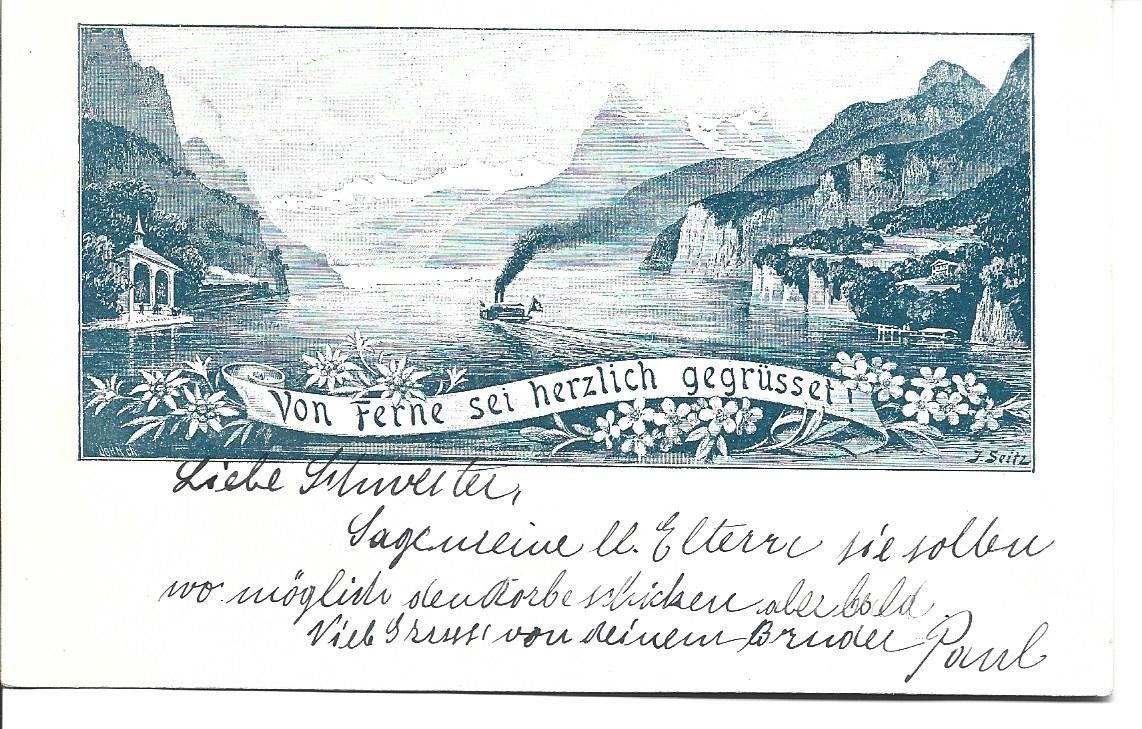 Von Ferne sei herzlich gegrüsset!
J. Seitz
Liebe Schwester,
Sage meine ll. Eltern sie sollen
wo möglich den Korbe schicken aber bald
Viele Grüsse von deinem Bruder
Paul